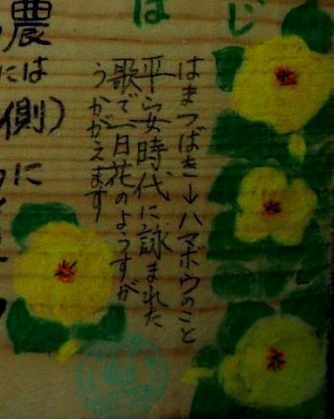 じ
はまつばき→ハマボウのこと
平安時代に詠まれた
歌で一日花のようすが
うかがえます
は
農
には
側)
に